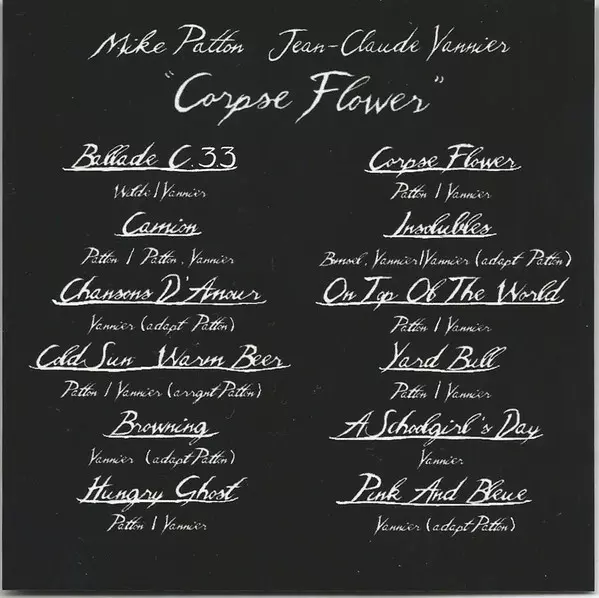 Mike Patton Jean-Claude Vannier
"Corpse Flower"
Ballade C.33
Wilde / Vannier
Camion
Patton / Patton, Vannier
Chansons D'Amour
Vannier (adapt Patton)
Cold Sun Warm Beer
Patton / Vannier (arrgnt Patton)
Browning
Vannier (adapt Patton)
Hungry Ghost
Patton / Vannier
Corpse Flower
Patton / Vannier
Insolubles
Bensel, Vannier/Vannier (adapt Patton)
On Top Of The World
Patton / Vannier
Yard Bull
Patton / Vannier
A Schoolgirl's Day
Vannier
Pink And Bleue
Vannier (adapt Patton)